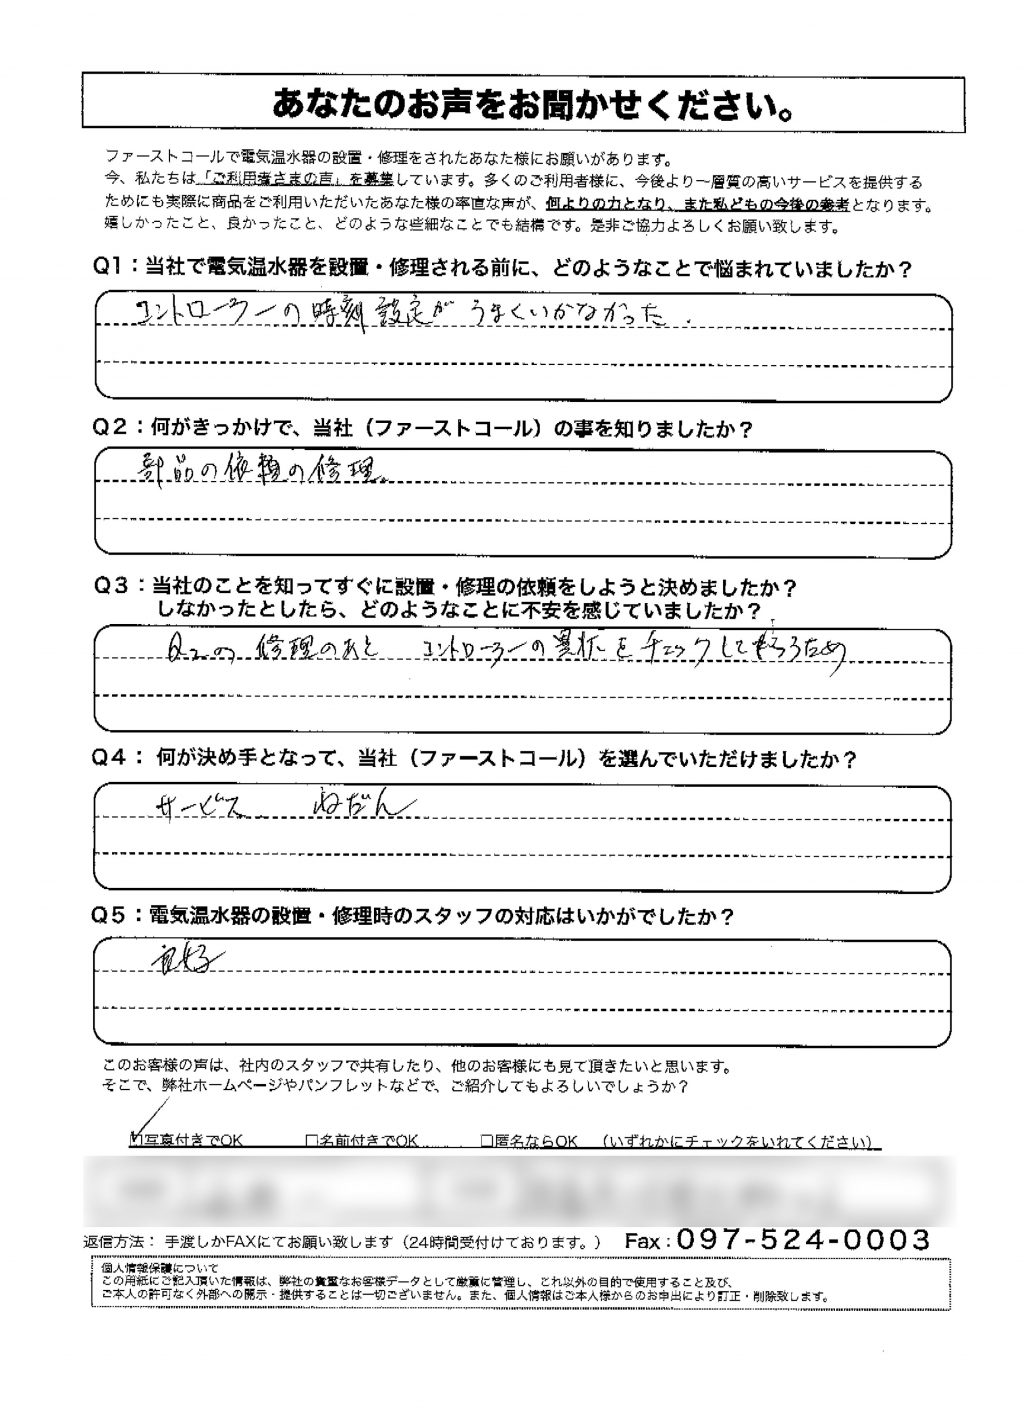 あなたのお声をお聞かせください。
ファーストコールで電気温水器の設置・修理をされたあなた様にお願いがあります。
今、私たちは「ご利用者さまの声」を募集しています。多くのご利用者様に、今後より一層質の高いサービスを提供する
ためにも実際に商品をご利用いただいたあなた様の率直な声が、何よりの力となり、また私どもの今後の参考となります。
嬉しかったこと、良かったこと、どのような些細なことでも結構です。是非ご協力よろしくお願い致します。
Q1：当社で電気温水器を設置・修理される前に、どのようなことで悩まれていましたか？
コントローラーの時刻設定がうまくいかなかった．
Q2：何がきっかけで、当社（ファーストコール）の事を知りましたか？
部品の依頼の修理。
Q3：当社のことを知ってすぐに設置・修理の依頼をしようと決めましたか？
しなかったとしたら、どのようなことに不安を感じていましたか？
Q2の 修理のあと コントローラーの異状をチェックしてもらうため
Q4： 何が決め手となって、当社（ファーストコール）を選んでいただけましたか？
サービス ねだん
Q5：電気温水器の設置・修理時のスタッフの対応はいかがでしたか？
良好
このお客様の声は、社内のスタッフで共有したり、他のお客様にも見て頂きたいと思います。
そこで、弊社ホームページやパンフレットなどで、ご紹介してもよろしいでしょうか？
☑写真付きでOK □名前付きでOK □匿名ならOK （いずれかにチェックをいれてください）
返信方法： 手渡しかFAXにてお願い致します（24時間受付けております。） Fax：097-524-0003
個人情報保護について
この用紙にご記入頂いた情報は、弊社の貴重なお客様データとして厳重に管理し、これ以外の目的で使用すること及び、
ご本人の許可なく外部への開示・提供することは一切ございません。また、個人情報はご本人様からのお申出により訂正・削除致します。